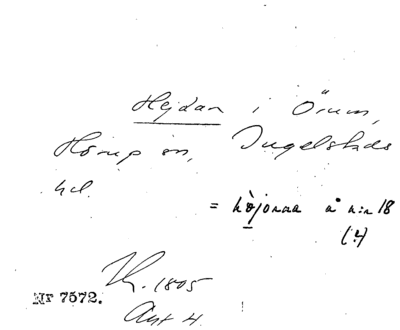 Hejdan i Örum,
Hörup sn, Ingelstads
hd.
= höjonaa å n:r 18
(?)
Nr 7572.
Th. 1805
Akt 4.